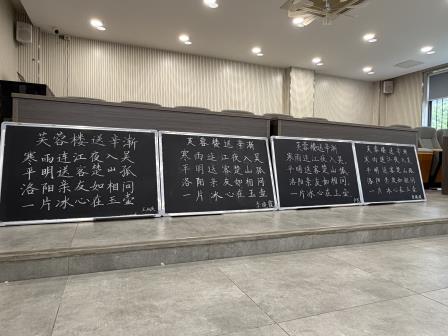 芙蓉楼送辛渐
寒雨连江夜入吴
平明送客楚山孤
洛阳亲友如相问
一片冰心在玉壶
芙蓉楼送辛渐
寒雨连江夜入吴
平明送客楚山孤
洛阳亲友如相问
一片冰心在玉壶
芙蓉楼送辛渐
寒雨连江夜入吴,
平明送客楚山孤。
洛阳亲友如相问,
一片冰心在玉壶。
芙蓉楼送辛渐
寒雨连江夜入吴
平明送客楚山孤
洛阳亲友如相问
一片冰心在玉壶